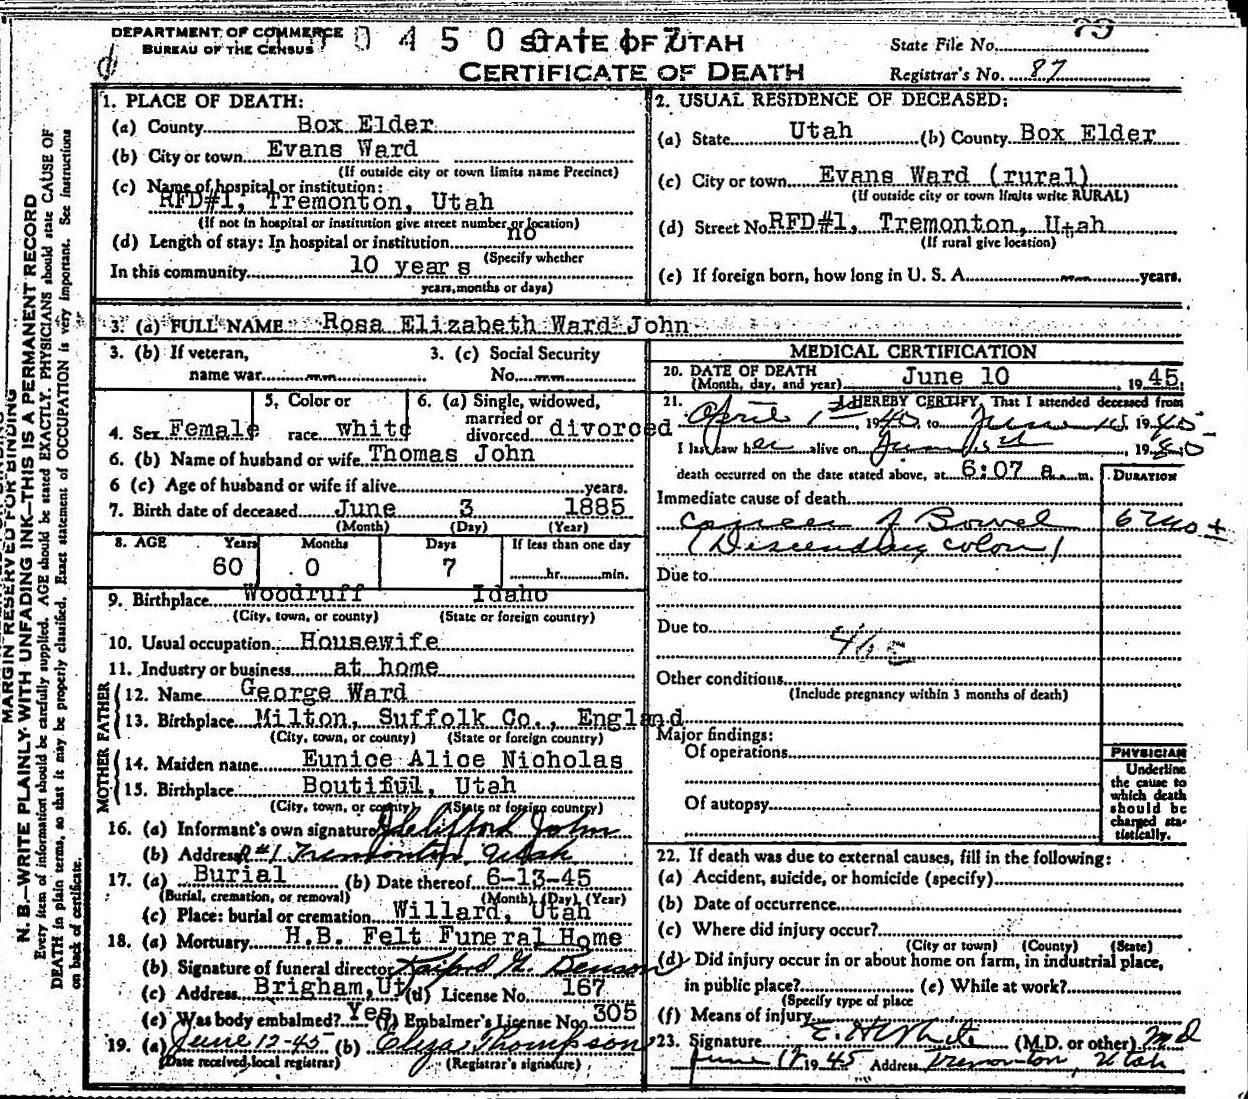 DEPARTMENT OF COMMERCE
BUREAU OF THE CENSUS
0 4 5 0 0
STATE OF UTAH
CERTIFICATE OF DEATH
State File No. 73
Registrar's No. 87
MARGIN RESERVED FOR BINDING
N. B.—WRITE PLAINLY WITH UNFADING INK—THIS IS A PERMANENT RECORD
Every item of information should be carefully supplied. AGE should be stated EXACTLY. PHYSICIANS should state CAUSE OF
DEATH in plain terms, so that it may be properly classified. Exact statement of OCCUPATION is very important. See instructions
on back of certificate.
1. PLACE OF DEATH:
(a) County Box Elder
(b) City or town Evans Ward
(If outside city or town limits name Precinct)
(c) Name of hospital or institution:
RFD#1, Tremonton, Utah
(If not in hospital or institution give street number or location)
(d) Length of stay: In hospital or institution no
(Specify whether
In this community 10 years
years, months or days)
2. USUAL RESIDENCE OF DECEASED:
(a) State Utah (b) County Box Elder
(c) City or town Evans Ward (rural)
(If outside city or town limits write RURAL)
(d) Street No RFD#1, Tremonton, Utah
(If rural give location)
(e) If foreign born, how long in U. S. A. years.
3. (a) FULL NAME Rosa Elizabeth Ward John
3. (b) If veteran,
name war
3. (c) Social Security
No.
4. Sex Female
5. Color or
race white
6. (a) Single, widowed,
married or
divorced divorced
6. (b) Name of husband or wife Thomas John
6 (c) Age of husband or wife if alive years.
7. Birth date of deceased June 3 1885
(Month) (Day) (Year)
8. AGE Years Months Days If less than one day
60 0 7 hr. min.
9. Birthplace Woodruff Idaho
(City, town, or county) (State or foreign country)
10. Usual occupation Housewife
11. Industry or business at home
FATHER
12. Name George Ward
13. Birthplace Milton, Suffolk Co., England
(City, town, or county) (State or foreign country)
MOTHER
14. Maiden name Eunice Alice Nicholas
15. Birthplace Boutiful, Utah
(City, town, or county) (State or foreign country)
16. (a) Informant's own signature Clifford John
(b) Address R#1 Tremonton, Utah
17. (a) Burial (b) Date thereof 6-13-45
(Burial, cremation, or removal) (Month) (Day) (Year)
(c) Place: burial or cremation Willard, Utah
18. (a) Mortuary H.B. Felt Funeral Home
(b) Signature of funeral director Benson
(c) Address Brigham, Ut (d) License No. 167
(e) Was body embalmed? Yes (f) Embalmer's License No. 305
19. (a) June 12-45 (b) Eliza Thompson
(Date received local registrar) (Registrar's signature)
MEDICAL CERTIFICATION
20. DATE OF DEATH
(Month, day, and year) June 10, 1945.
21. I HEREBY CERTIFY, That I attended deceased from
April 1st 1945, to June 10, 1945
I last saw her alive on June 1945
death occurred on the date stated above, at 6:07 a. m.
DURATION
Immediate cause of death
Cancer of Bowel 6 mo +
(Descending colon)
Due to
Due to
46
Other conditions
(Include pregnancy within 3 months of death)
Major findings:
Of operations
Of autopsy
PHYSICIAN
Underline
the cause to
which death
should be
charged sta-
tistically.
22. If death was due to external causes, fill in the following:
(a) Accident, suicide, or homicide (specify)
(b) Date of occurrence
(c) Where did injury occur?
(City or town) (County) (State)
(d) Did injury occur in or about home on farm, in industrial place,
in public place? (e) While at work?
(Specify type of place
(f) Means of injury
23. Signature E. H. White (M.D. or other) Md
June 1945 Address Tremonton, Utah